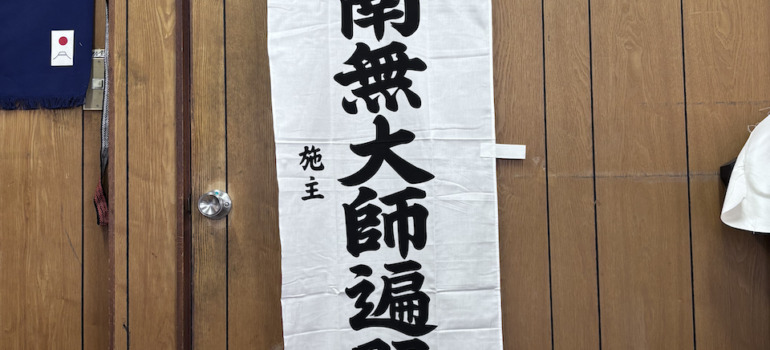 南無大師遍
施主